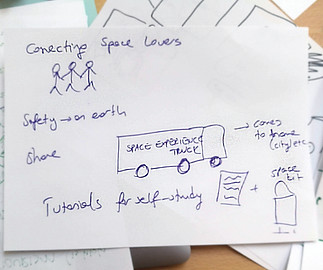 Conecting Space Lovers
Safety → on earth
Share
SPACE EXPERIENCE
TRUCK
→ comes
to home
(city, etc)
Tutorials for self-study
+
space
kit